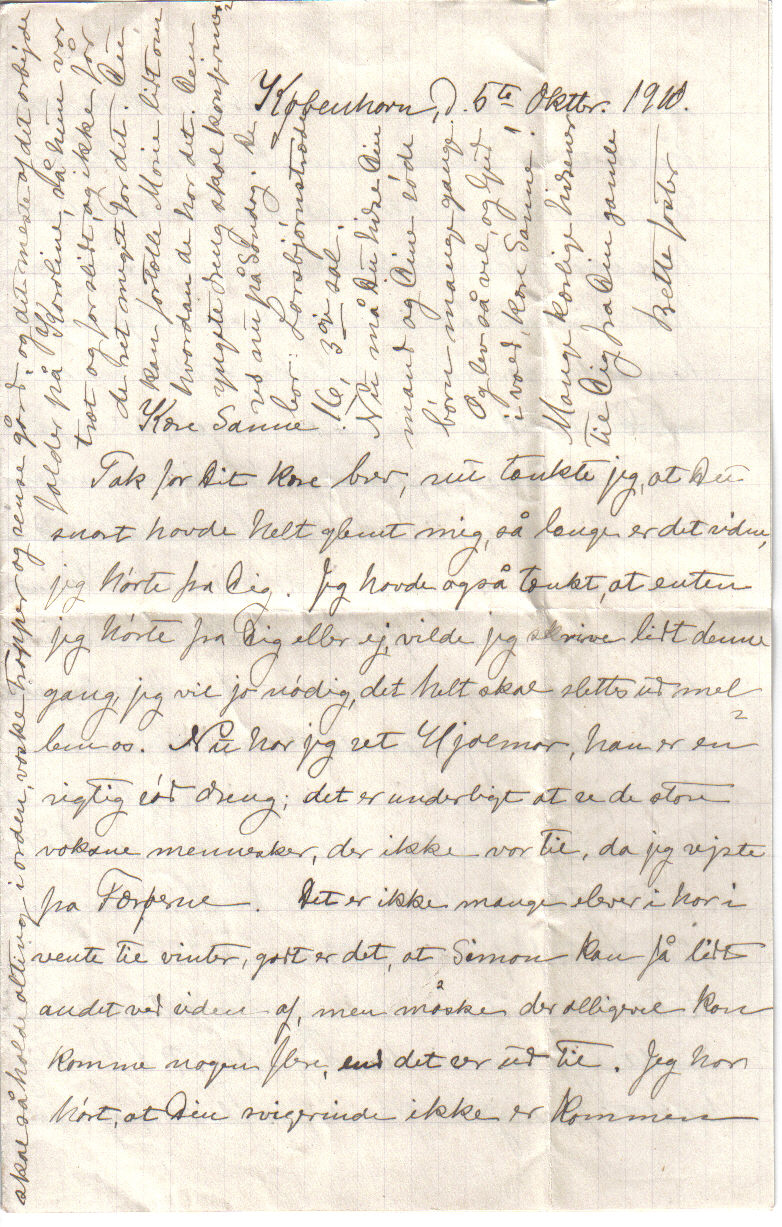 København, d. 5te Oktbr. 1910.
Kære Sanne!
Tak for Dit kære brev, nu tænkte jeg, at Du
snart havde helt glemt mig, så længe er det siden,
jeg hørte fra Dig. Jeg havde også tænkt, at enten
jeg hørte fra Dig eller ej, vilde jeg skrive lidt denne
gang, jeg vil jo nødig, det helt skal slettes ud mel
lem os. Nu har jeg set Hjalmar, han er en
rigtig sød dreng; det er underligt at se de store
voksne mennesker, der ikke var til, da jeg rejste
fra Færøerne. Det er ikke mange elever i har i
vente til vinter, godt er det, at Simon kan få lidt
andet ved siden af, men måske der alligevel kan
komme nogen flere, end det ser ud til. Jeg har
hørt, at Din svigerinde ikke er kommen
skal så holde alting i orden, vaske trapper og rense gård, og det meste af det arbejde
falder på Karoline, så hun var
træt og forslidt, og ikke før
de ret meget for dit. Du
kan fortælle Marie lidt om
hvordan de har det. Den
yngste dreng skal konfirmeres
nu på Søndag. De
bor: Larsbjørnstræde
16, 3die sal.
Nu må Du hilse Din
mand og Dine søde
børn mange gange
Og lev så vel, og Gud
i vold, kære Sanne!
Mange kærlige hilsener
til Dig fra Din gamle
Jette faster